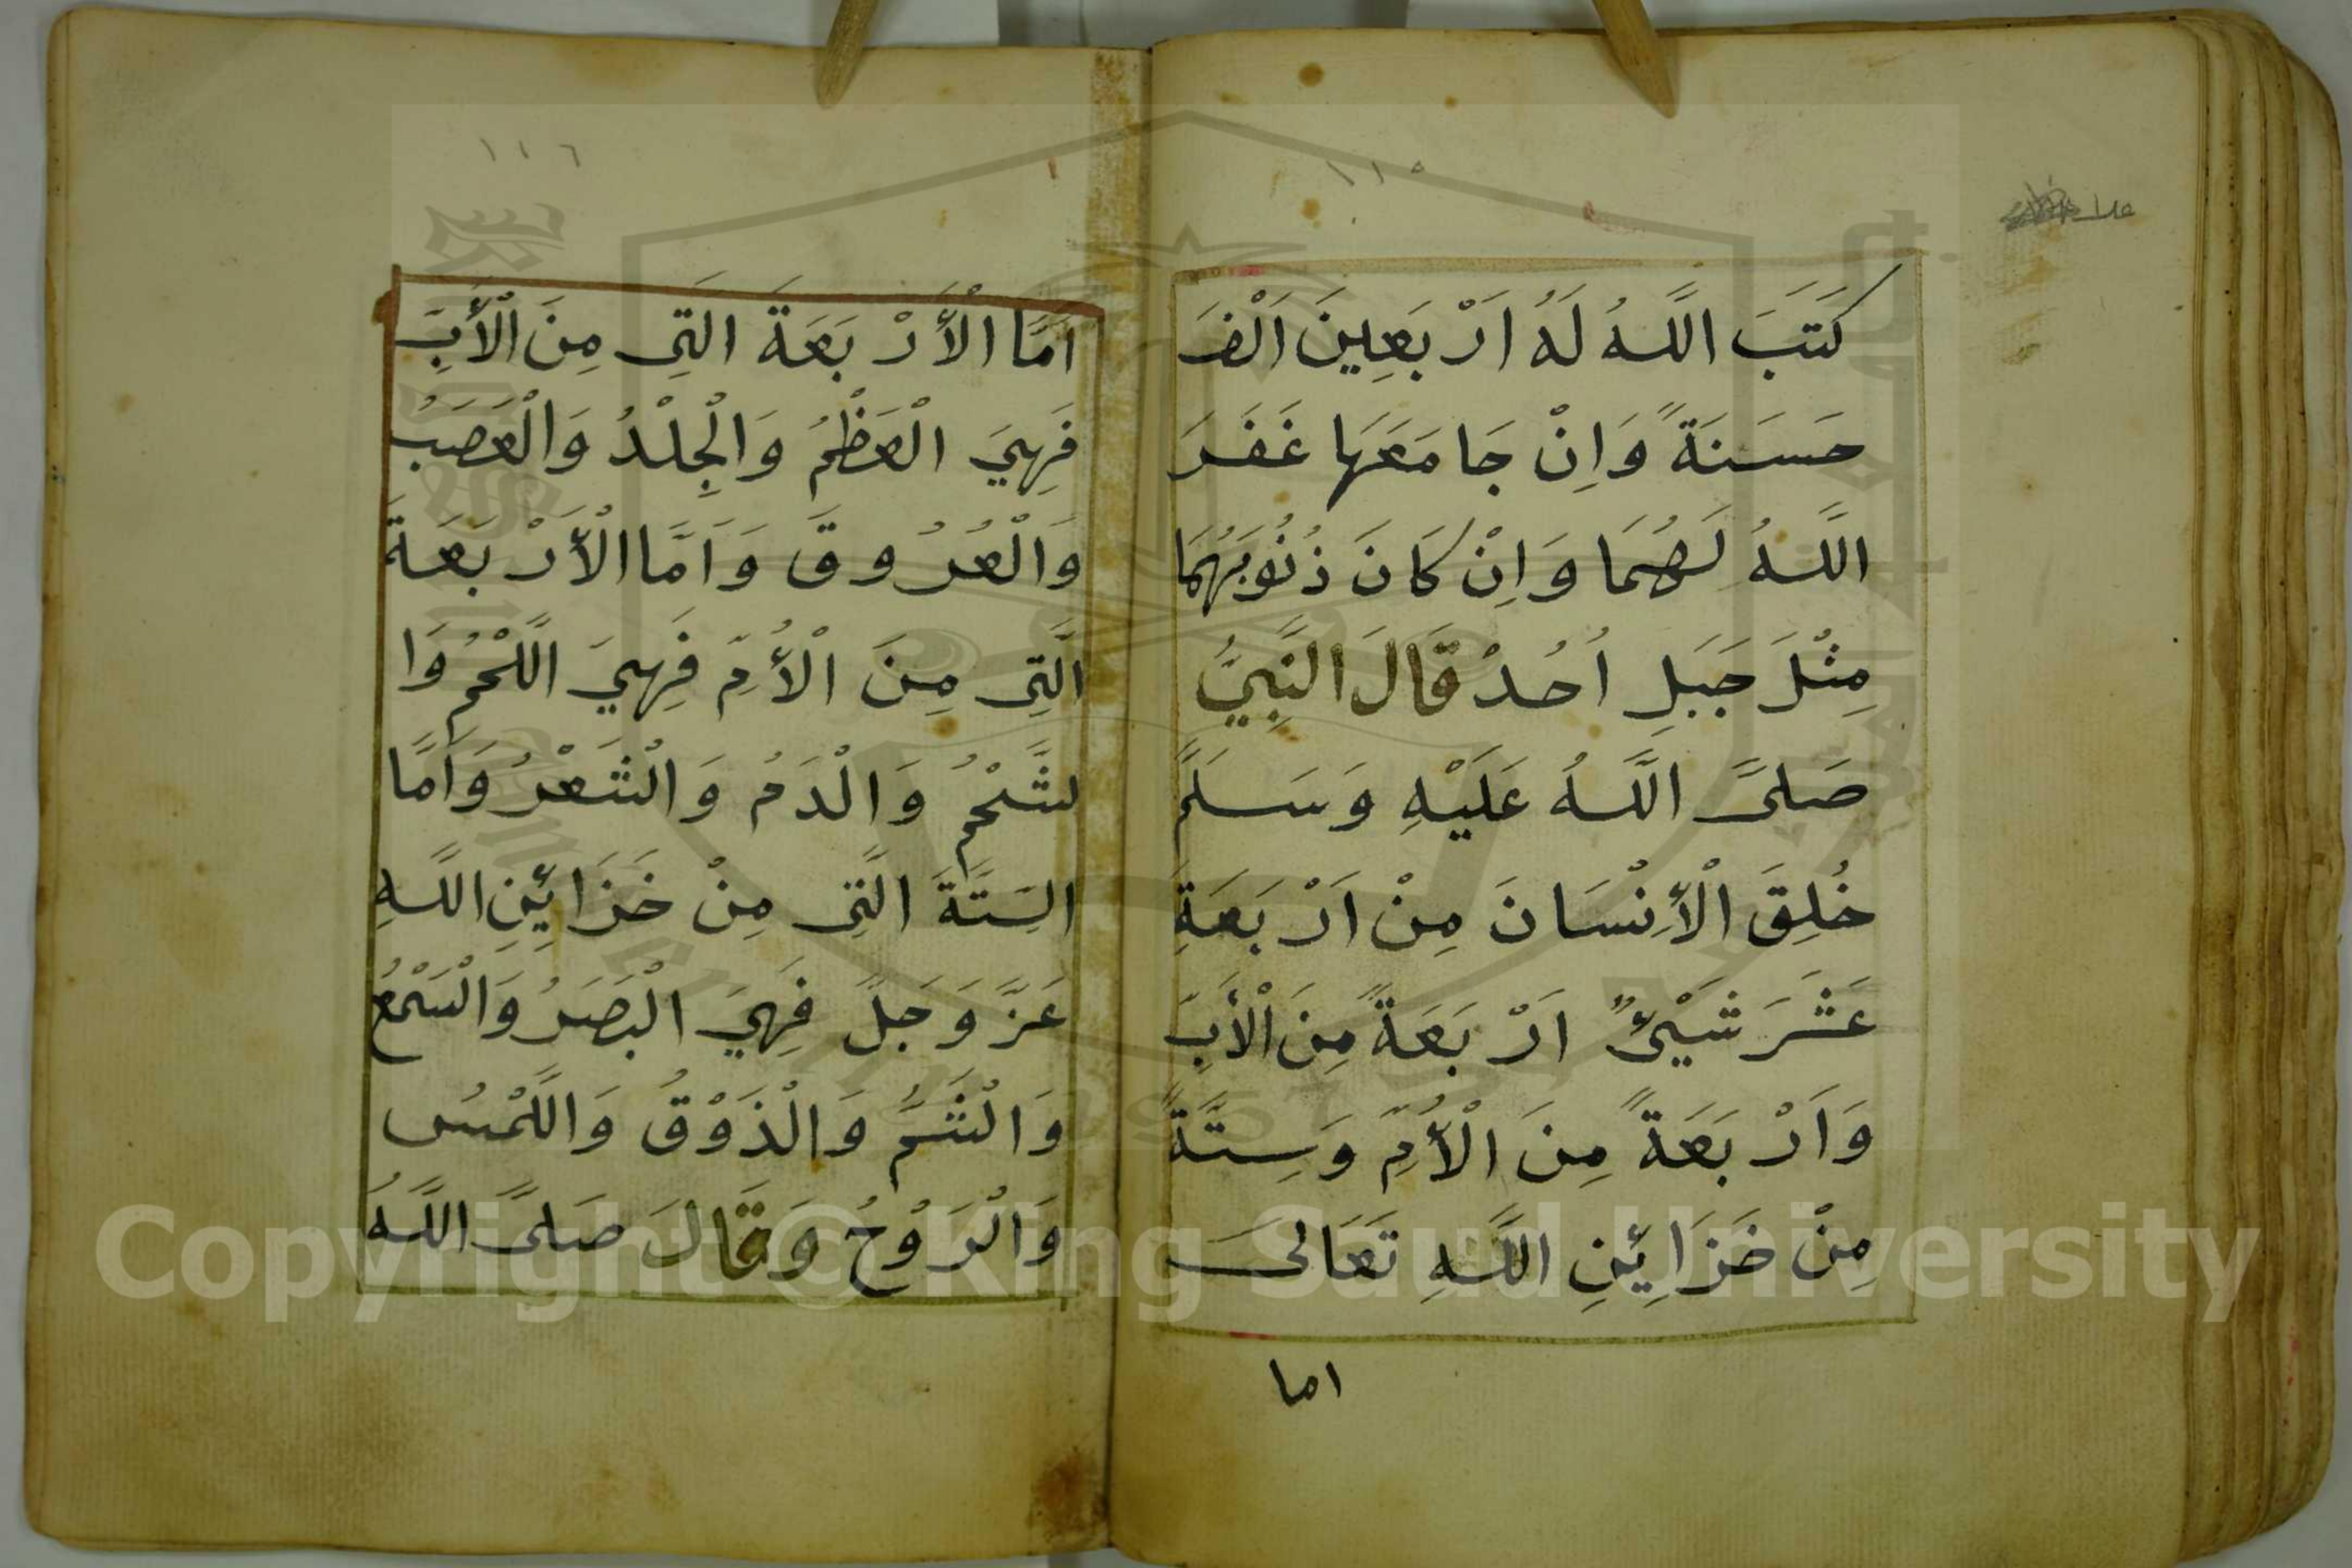 ١١٥
كَتَبَ اللَّهُ لَهُ اَرْبَعِينَ اَلْفَ
حَسَنَةً وَاِنْ جَامَعَهَا غَفَرَ
اللَّهُ لَهُمَا وَاِنْ كَانَ ذُنُوبَهُمَا
مِثْلَ جَبَلِ اُحُدْ قَالَ النَّبِيُّ
صَلَّى اللَّهُ عَلَيْهِ وَسَلَّمَ
خُلِقَ الْأِنْسَانَ مِنْ اَرْبَعَةِ
عَشَرَ شَيْئٍ اَرْبَعَةً مِنَ الْأَبِّ
وَاَرْبَعَةً مِنَ الْأُمِّ وَسِتَّةً
مِنْ خَزَائِنِ اللَّهِ تَعَالَى
اما
١١٦
اَمَّا الْأَرْبَعَةَ الَّتِى مِنَ الْأَبِّ
فَهِيَ الْعَظْمُ وَالْجِلْدُ وَالْعَصَبُ
وَالْعُرُوقَ وَاَمَّا الْأَرْبَعَةَ
الَّتِى مِنَ الْأُمِّ فَهِيَ اللَّحْمُ وَا
لشَّحْمُ وَالْدَمُ وَالْشَعْرُ وَاَمَّا
السِّتَّةَ الَّتِى مِنْ خَزَائِنِ اللَّهِ
عَزَّ وَجَلَّ فَهِيَ الْبَصَرُ وَالْسَمْعُ
وَالْشَمُّ وَالْذَوْقُ وَاللَّمْسُ
وَالْرَوْحُ وَقَالَ صَلَّى اللَّهُ
Copyright © King Saud University